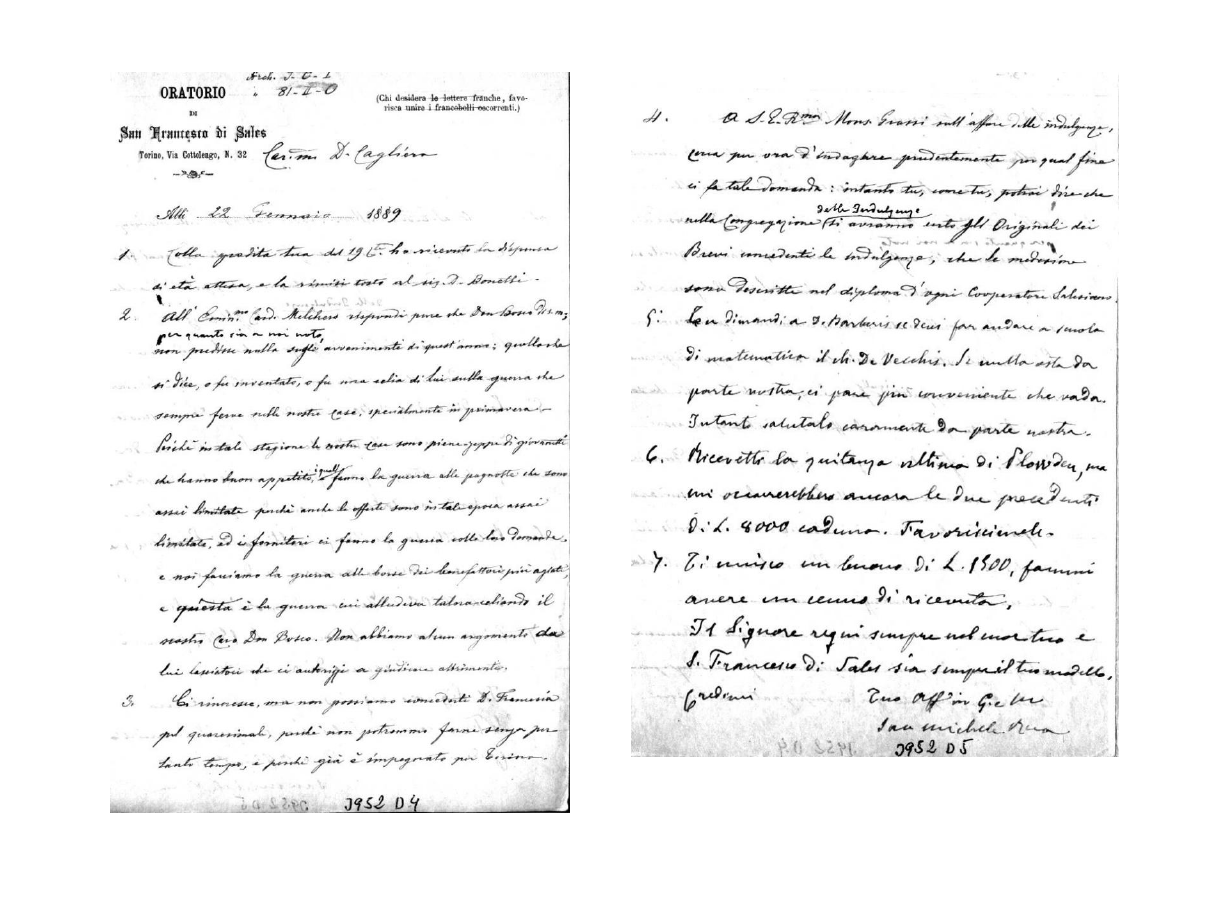 Arch. J-C-I
" 81-II-O
ORATORIO
DI
San Francesco di Sales
Torino, Via Cottolengo, N. 32
(Chi desidera le lettere franche, favo-
risca unire i francobolli occorrenti.)
Car.mo D. Cagliero
Alli 22 Gennaio 1889
1. Colla gradita tua del 19 ho ricevuto la dispensa
di età attesa, e la rimisi tosto al sig. D. Bonetti.
2. All' Emin.mo Card. Melchers rispondi pure che Don Bosco
per quanto sia a noi noto,
non predisse nulla sugli avvenimenti di quest'anno; quello che
si dice, o fu inventato, o fu una celia di lui sulla guerra che
sempre ferve nelle nostre case, specialmente in primavera.
Poichè in tale stagione le nostre case sono piene zeppe di giovanetti
che hanno buon appetito, i quali fanno la guerra alle pagnotte che sono
assai limitate perchè anche le offerte sono in tale epoca assai
limitate, ed i fornitori ci fanno la guerra colle loro domande,
e noi facciamo la guerra alle borse dei benefattori più agiati,
e questa è la guerra cui alludeva talora celiando il
nostro Caro Don Bosco. Non abbiamo alcun argomento da
lui lasciatoci che ci autorizzi a giudicare altrimenti.
3. Ci rincresce, ma non possiamo concederti D. Francesia
pel quaresimale, perchè non potremmo farne senza per
tanto tempo, e perchè già è impegnato per Torino.
J952 D4
4. A S. E. R.ma Mons. Grassi sull'affare delle indulgenze,
cerca per ora d'indagare prudentemente per qual fine
ci fa tale domanda: intanto tu, come tu, potrai dire che
delle Indulgenze
nella Congregazione si avranno certo gli Originali dei
Brevi concedenti le indulgenze, che le medesime
sono descritte nel diploma d'ogni Cooperatore Salesiano.
5. dimandi a D. Barberis se devi far andare a scuola
di matematica il ch. De Vecchis. Se nulla osta da
parte vostra, ci pare più conveniente che vada.
Intanto salutalo caramente da parte nostra.
6. Ricevetti la quitanza ultima di Plowden, ma
mi occorrerebbero ancora le due precedenti
di L. 8000 caduna. Favoriscimele.
7. Ti unisco un buono di L. 1500, fammi
avere un cenno di ricevuta.
Il Signore regni sempre nel cuor tuo e
S. Francesco di Sales sia sempre il tuo modello.
Credimi
Tuo Aff. in G. e M.
Sac. Michele Rua
J952 D5